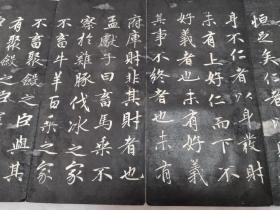 恒足矣仁
身不仁者以身發財
未有上好仁而下不
好義者也未有好義
其事不終者也未有
府庫財非其財者也
孟獻子曰畜馬乘不
察於雞豚伐冰之家
不畜牛羊百乘之家
不畜聚斂之臣與其
有聚斂之臣